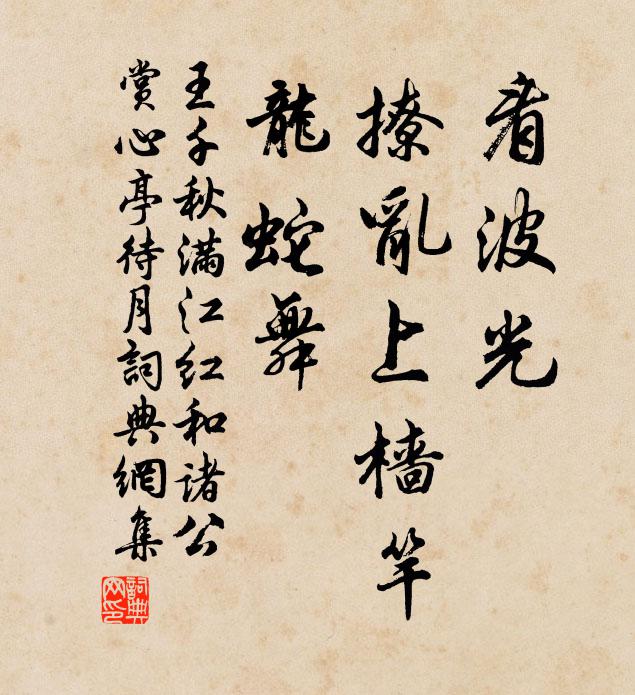 看波光
撩亂上檣竿
龍蛇舞
王千秋滿江红和諸公
賞心亭待月詞典網集
詞典網印